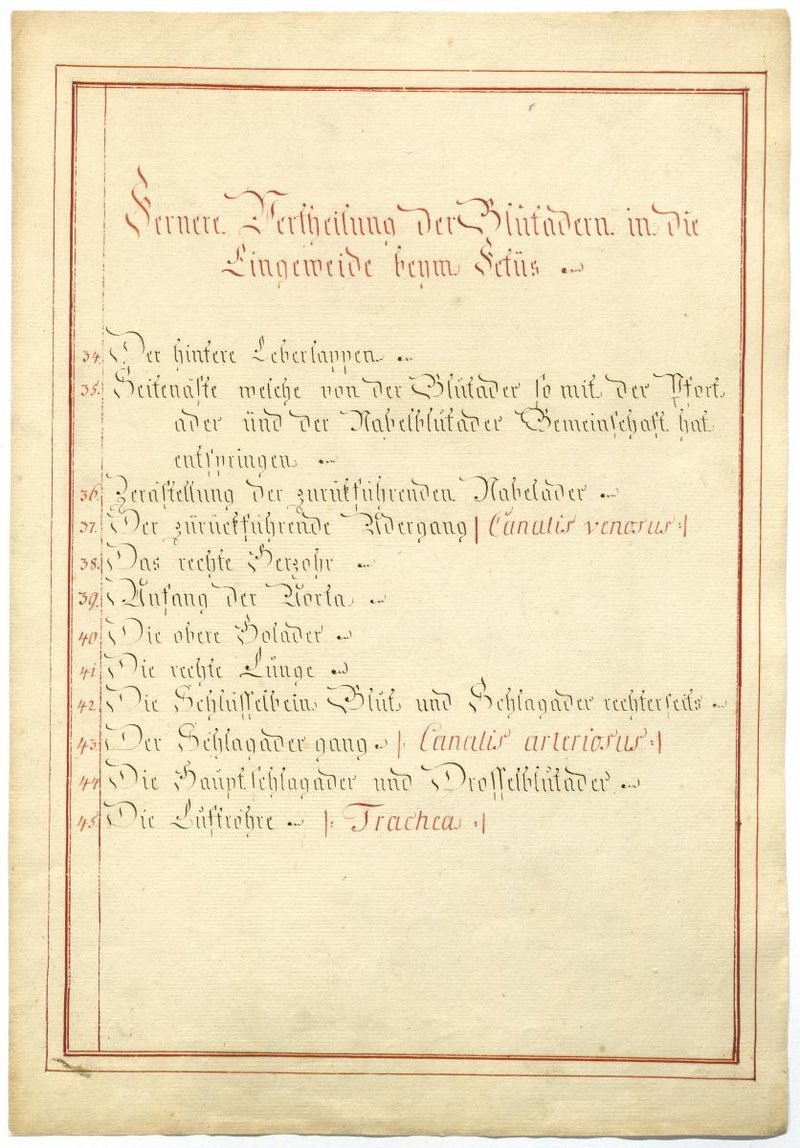 Fernere Vertheilung der Blutadern in die
Eingeweide beym Fetüs
34. Der hintere Leberlappen
35. Seitenäste welche von der Blütader so mit der Pfort
ader ünd der Nabelblütader Gemeinschaft hat
entspringen
36. Zerästellung der zurükführenden Nabelader
37. Der zürückführende Adergang |Canalis venosus:|
38. Das rechte Herzohr
39. Anfang der Aorta
40 Die obere Holader
41 Die rechte Lunge
42. Die Schlüsselbein Blut und Schlagader rechterseits
43. Der Schlagader gang |: Canalis arteriosus:|
44 Die Hauptschlagader und Drosselblutader
45. Die Luftröhre |: Trachea :|